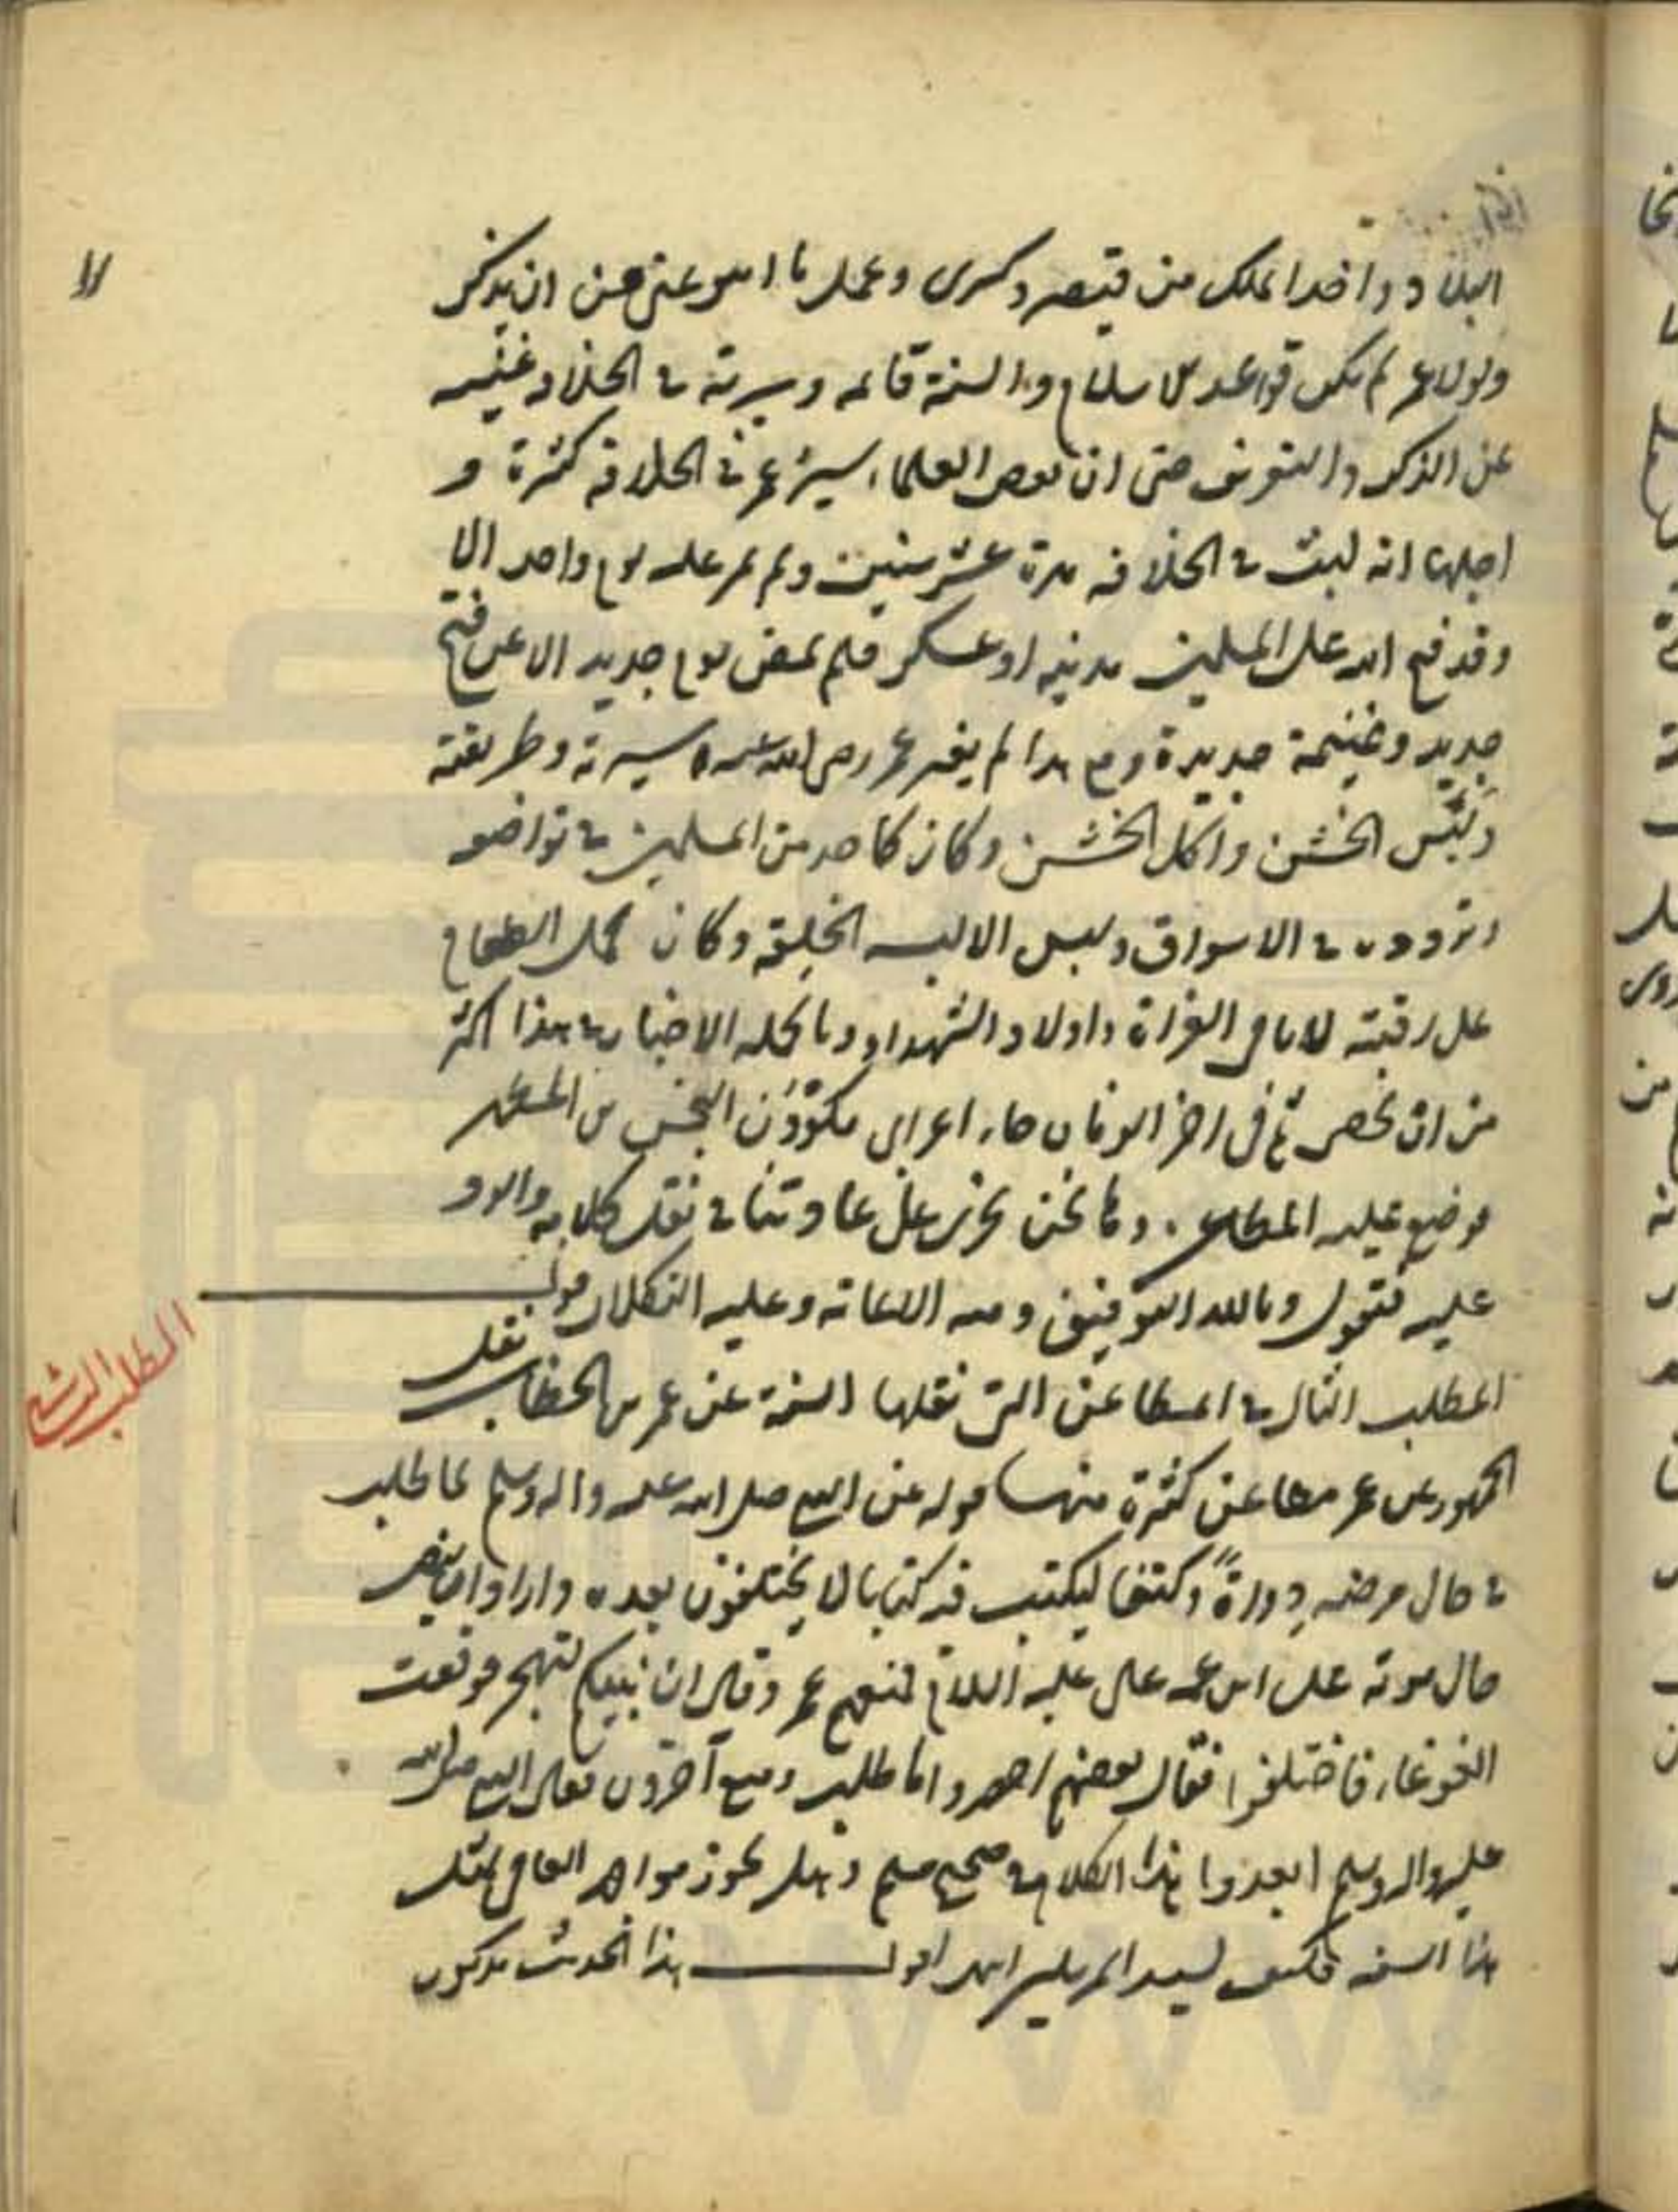 البلاد واخذ الملك من قيصر وكسرى وعمل ما هو غنى عن ان يذكر
ولولا عمر لم يكن قواعد الاسلام والسنة قائمه وسيرته في الخلافه غنيه
عن الذكر والتعريف حتى ان بعض العلماء سيرة عمر في الخلافه كثيرة و
اجلها انه لبث في الخلافه مدة عشر سنين ولم يمر عليه يوم واحد الا
وقد فتح الله على المسلمين مدينه او عسكر فلم يمض يوم جديد الا عن فتح
جديد وغنيمة جديدة ومع هذا لم يغير عمر رضى الله عنه سيرته وطريقته
ولبس الخشن واكل الخشن وكان كاحد من المسلمين في تواضعه
وتردده في الاسواق ولبس الالبسه الخلقه وكان يحمل الطعام
على رقبته لايامى الغزاة واولاد الشهداء وبالجمله الاخبار في هذا اكثر
من ان تحصى ثم في اخر الزمان جاء اعرابى النجس بن المطهر
موضع عليه المطاعن وها نحن نجرى على عادتنا في نقل كلامه والرد
عليه فنقول وبالله التوفيق ومنه الاعانه وعليه التكلان قوله
المطلب الثانى في المطاعن التى نقلها السنة عن عمر بن الخطاب نقل
المطلب الشنيع
الجمهور عن عمر مطاعن كثيرة منها قوله عن النبى صلى الله عليه واله وسلم لما طلب
في حال مرضه دواة وكتفا ليكتب فيه كتابا لا يختلفون بعده واراد ان ينص
حال موته على ابن عمه على عليه السلام فمنعهم عمر وقال ان نبيكم ليهجر فوقعت
الغوغاء فاختلفوا فقال بعضهم احضروا ما طلب ومنع آخرون فقال النبى صلى الله
عليه واله وسلم ابعدوا هذا الكلام في صحيح مسلم وهل يجوز مواجهه العامى بمثل
هذا السفه فكيف لسيد المرسلين انتهى اقول هذا الحديث مذكور